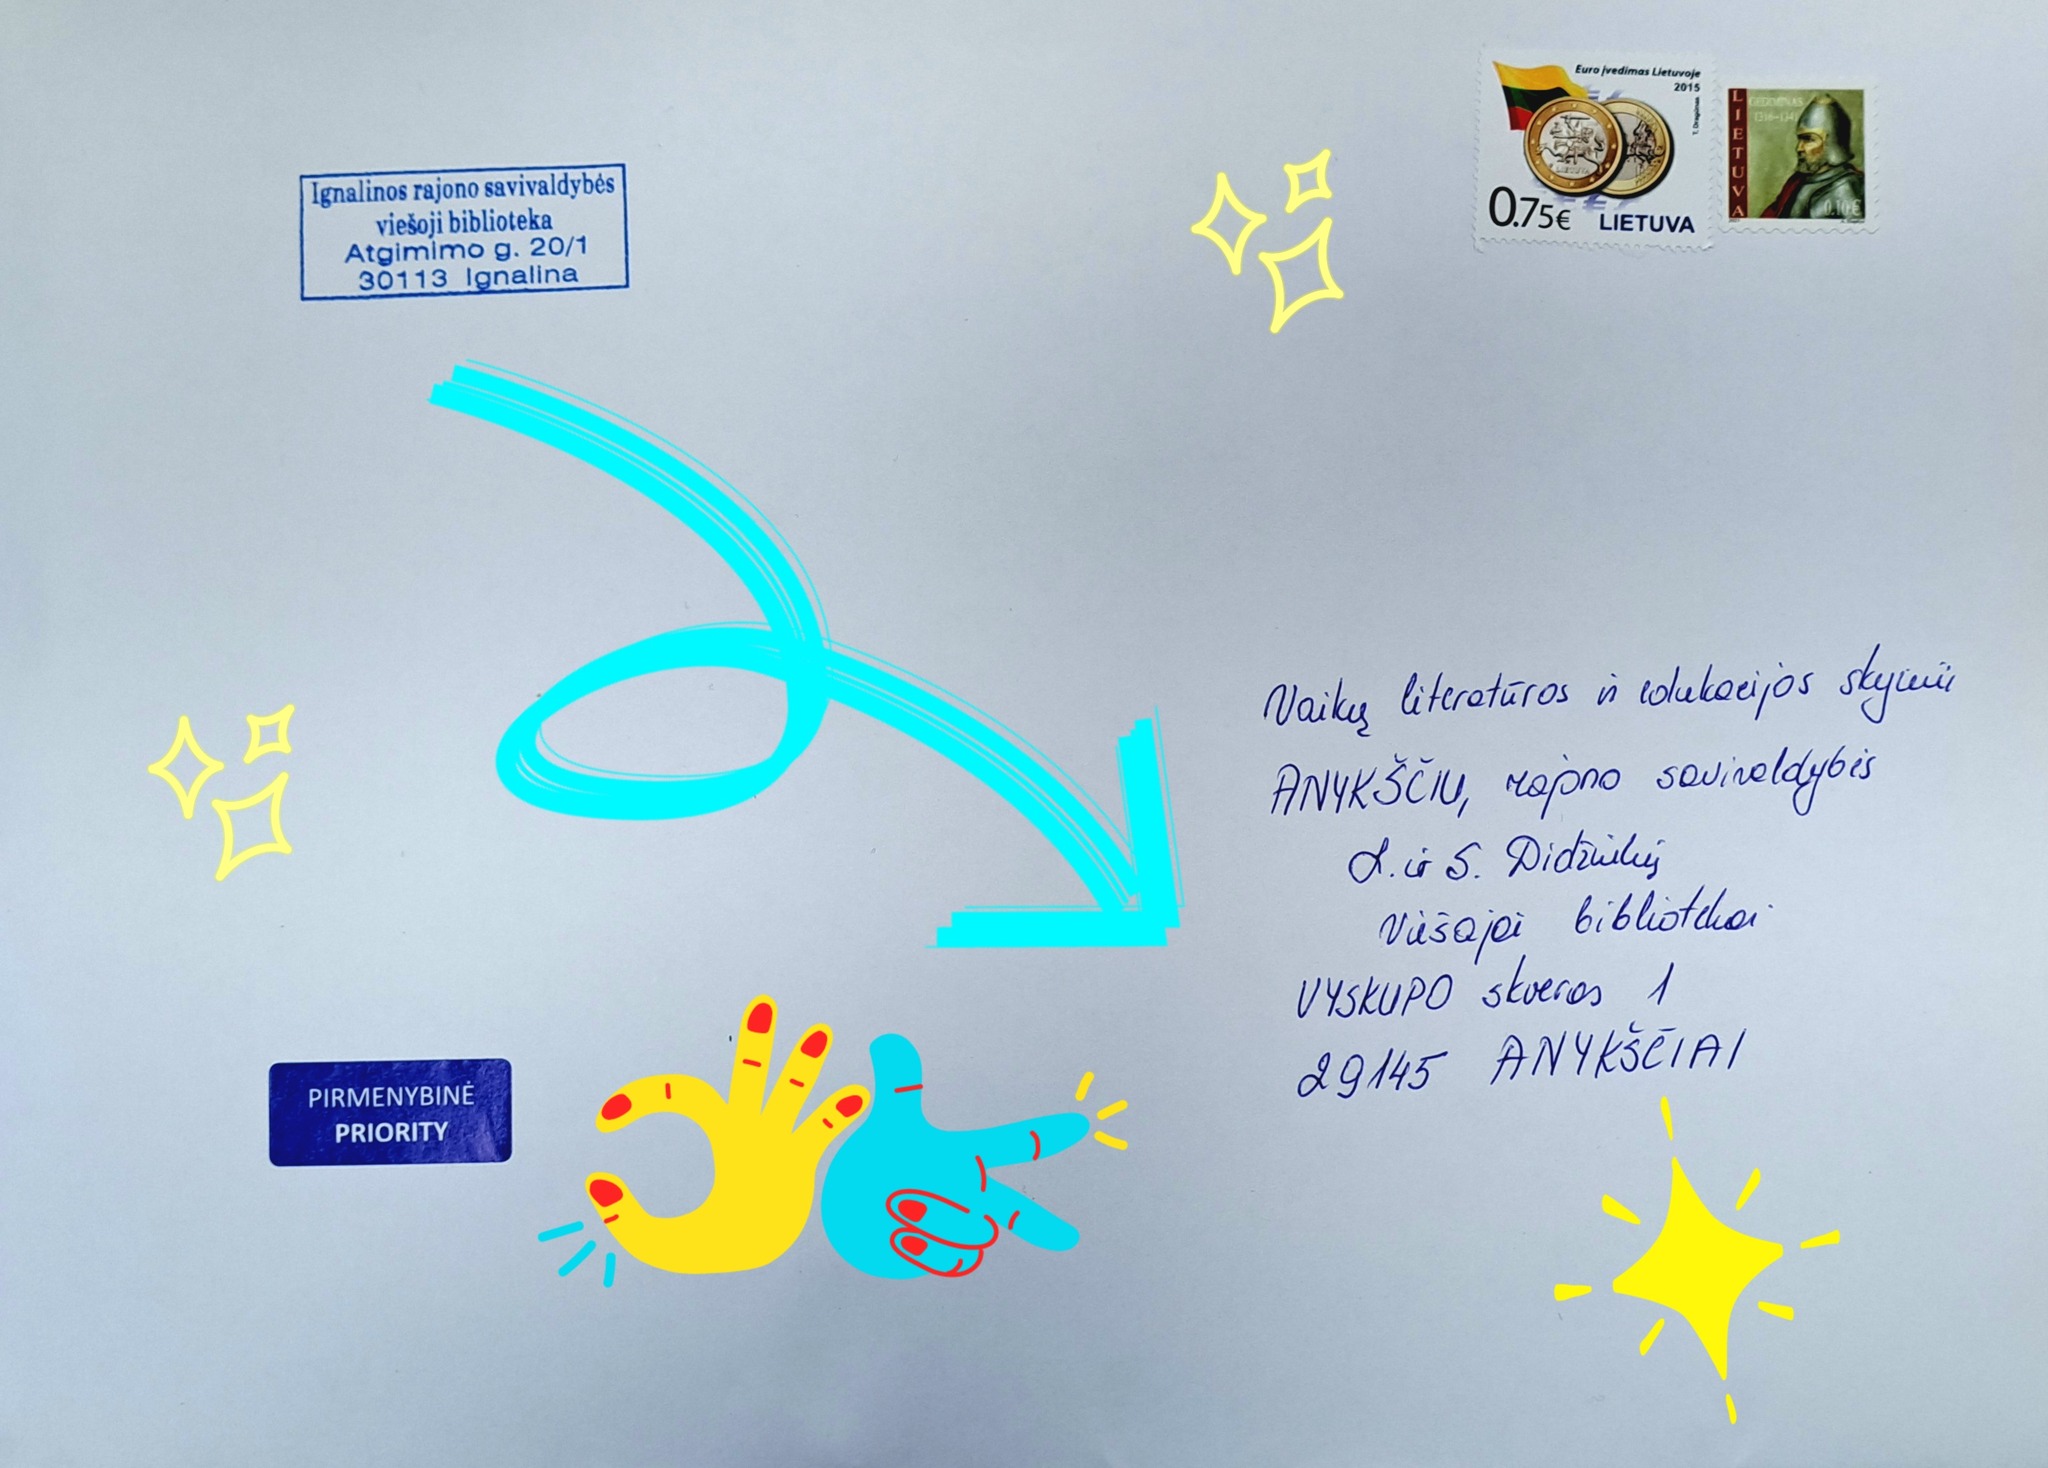 Ignalinos rajono savivaldybės
viešoji biblioteka
Atgimimo g. 20/1
30113 Ignalina
Euro įvedimas Lietuvoje
2015
T. Dragūnas
LIETUVA
0.75€ LIETUVA
LIETUVA
GEDIMINAS
1316-1341
0.10 €
Vaikų literatūros ir edukacijos skyriui
ANYKŠČIŲ rajono savivaldybės
L. ir S. Didžiulių
Viešajai bibliotekai
VYSKUPO skveras 1
29145 ANYKŠČIAI
PIRMENYBINĖ
PRIORITY